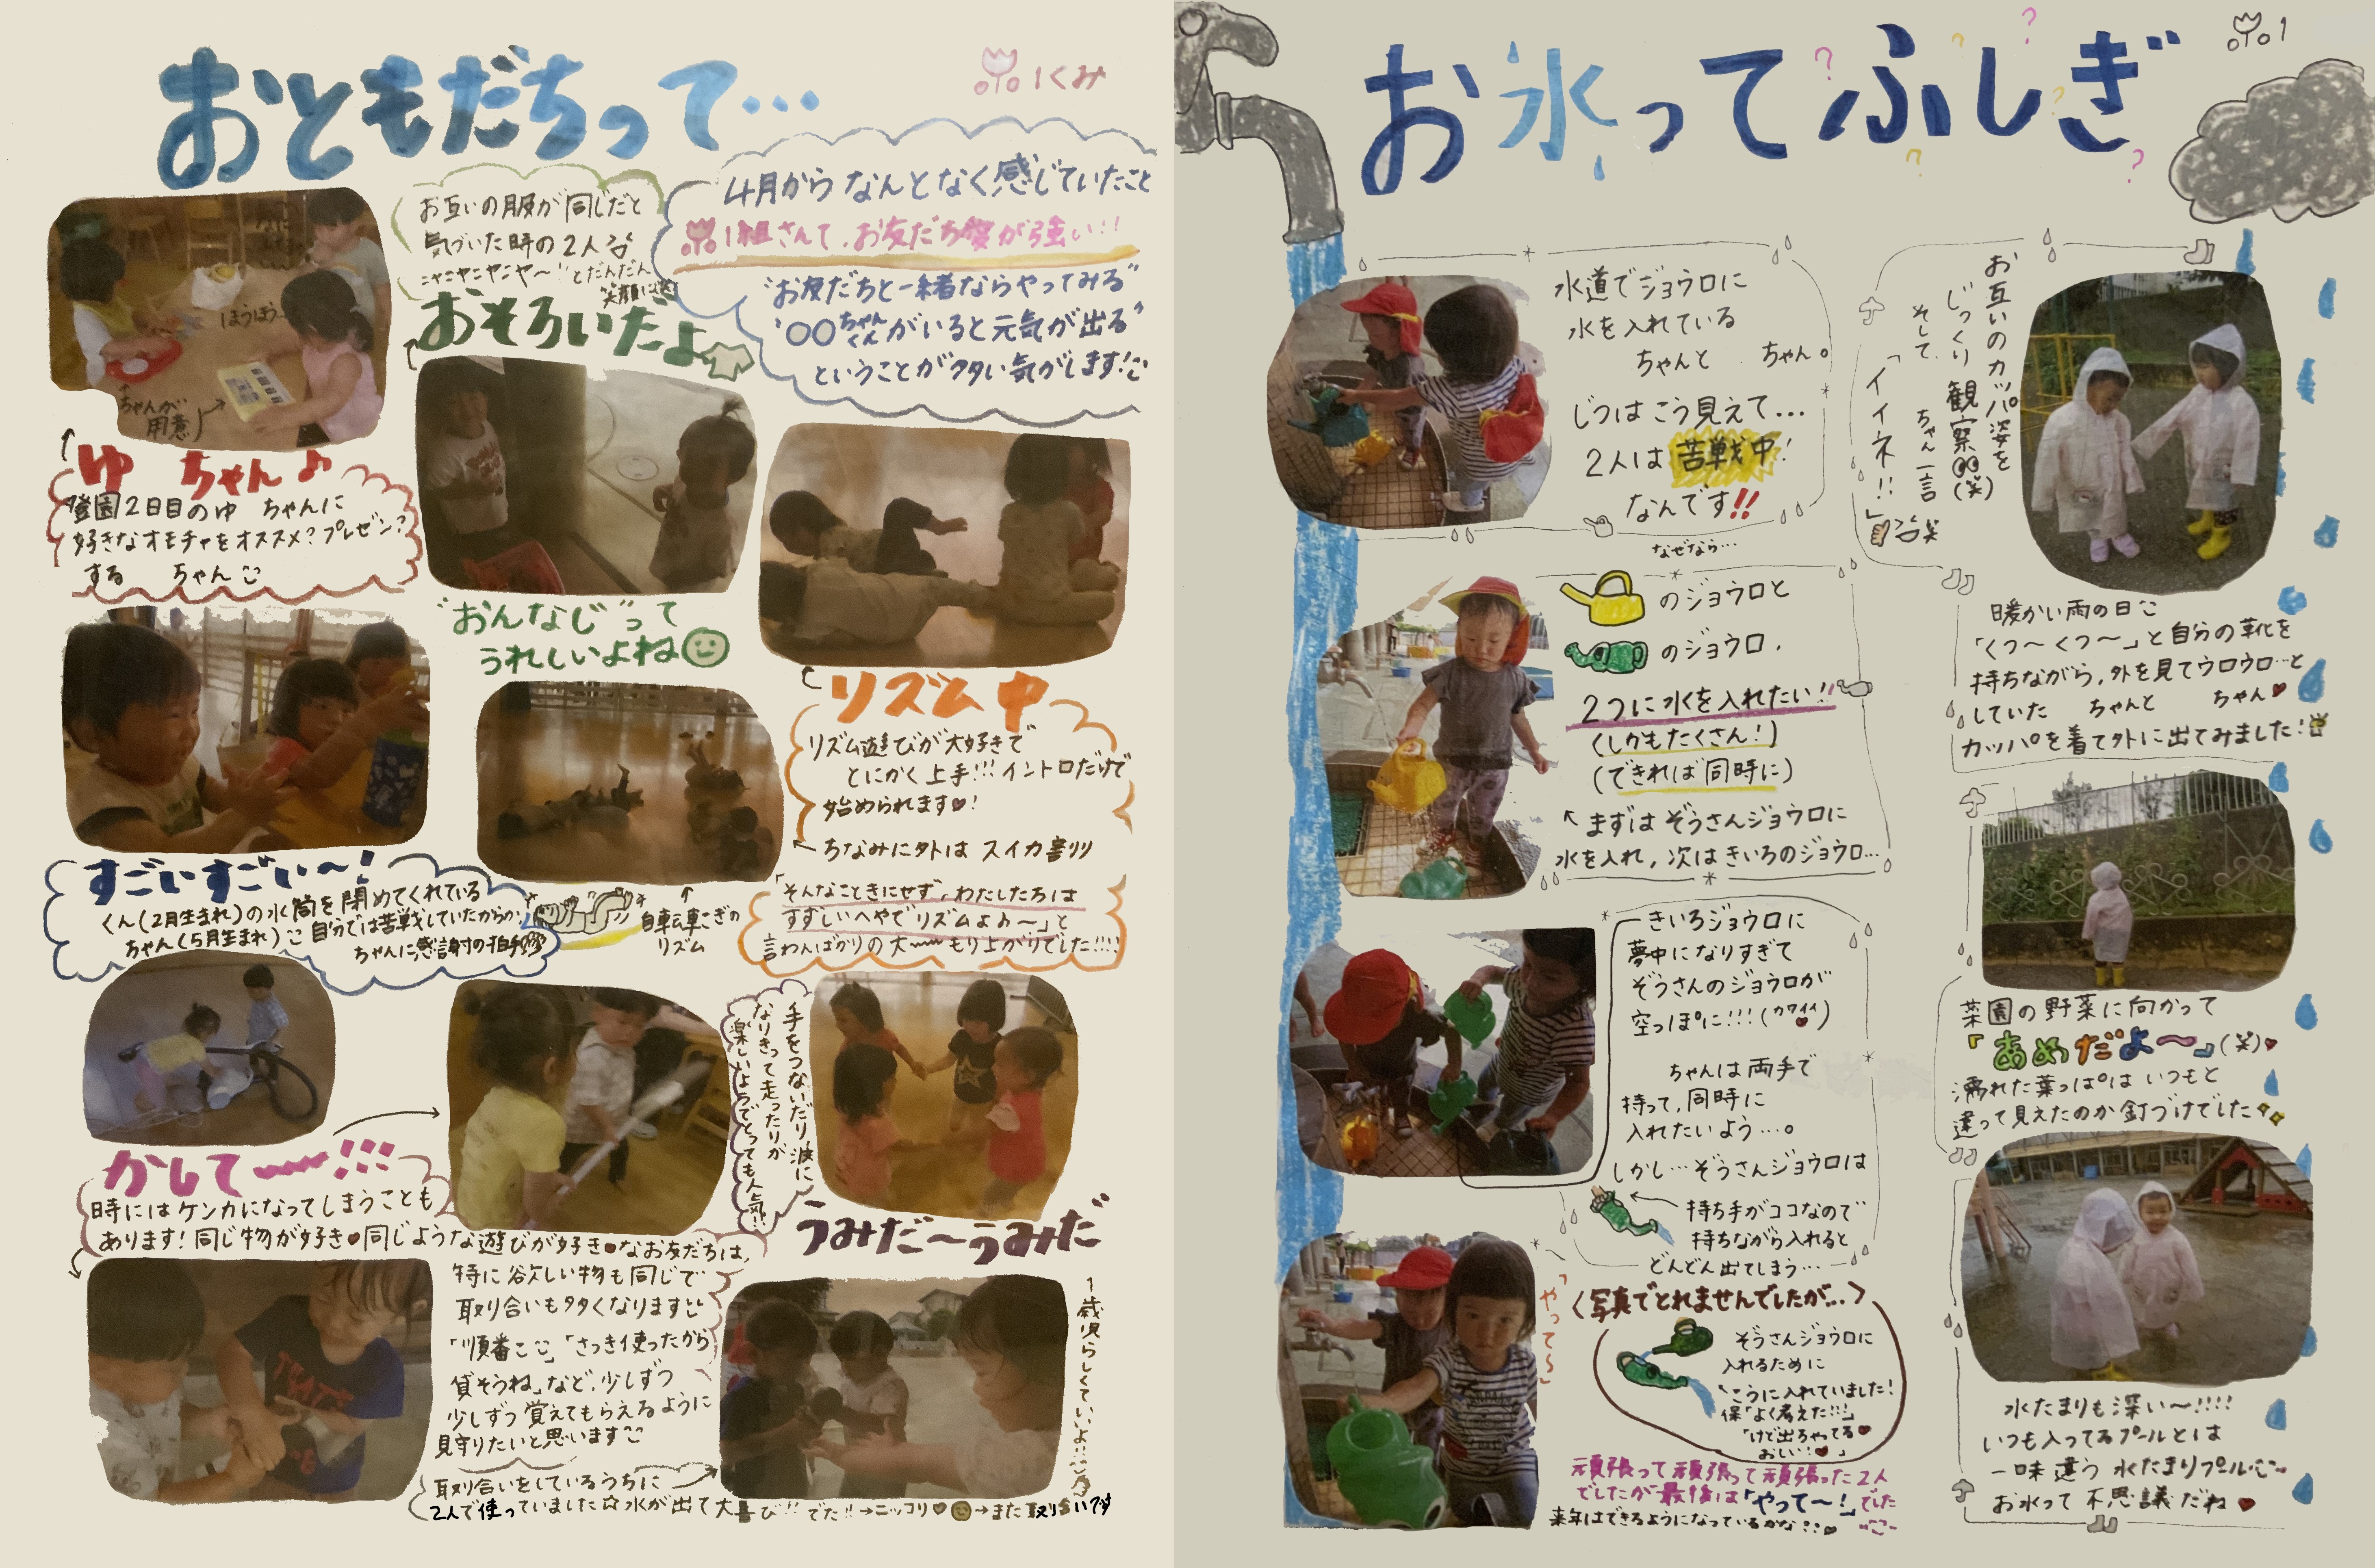 おともだちって…
1くみ
4月からなんとなく感じていたこと
1組さんて、お友だち愛が強い!!
"お友だちと一緒ならやってみる"
"〇〇ちゃんくんがいると元気が出る"
ということが多い気がします!
お互いの服が同じだと
気づいた時の2人
ニャニヤニヤニヤ〜!!とだんだん
笑顔に
おそろいだよ
"おんなじ"って
うれしいよね
ほうほう…
ちゃんが
用意
ゆ ちゃん♪
登園2日目のゆ ちゃんに
好きなオモチャをオススメ?プレゼン?
する ちゃん
リズム中
リズム遊びが大好きで
とにかく上手!!!イントロだけで
始められます♥!
ちなみに外は スイカ割り
「そんなこときにせず、わたしたちは
すずしいへやでリズムよ♪〜」と
言わんばかりの大〜〜もり上がりでした!!!!
自転車こぎの
リズム
すごいすごい〜!
くん(2月生まれ)の水筒を閉めてくれている
ちゃん(5月生まれ) 自分では苦戦していたからか
ちゃんに感謝の拍手
かして〜〜!!!
時にはケンカになってしまうことも
あります!同じ物が好き♥同じような遊びが好き♥なお友だちは、
特に欲しい物も同じで
取り合いも多くなります
「順番こ」「さっき使ったから
貸そうね」など、少しずつ
少しずつ覚えてもらえるように
見守りたいと思います
手をつないだり波に
なりきって走ったりが
楽しいようでとっても人気!!
うみだ〜うみだ
取り合いをしているうちに
2人で使っていました☆水が出て大喜び!!でた!!→ニッコリ♥→また取り合いです
1歳児らしくていいよ!!
お水ってふしぎ
1
水道でジョウロに
水を入れている
ちゃんと ちゃん。
じつはこう見えて…
2人は苦戦中!
なんです!!
なぜなら…
のジョウロと
のジョウロ、
2つに水を入れたい!!
(しかもたくさん!)
(できれば同時に)
まずはぞうさんジョウロに
水を入れ、次はきいろのジョウロ…
きいろジョウロに
夢中になりすぎて
ぞうさんのジョウロが
空っぽに!!!(カワイイ♥)
ちゃんは両手で
持って、同時に
入れたいよう…。
しかし…ぞうさんジョウロは
持ち手がココなので
持ちながら入れると
どんどん出てしまう…
「やって〜」
〈写真でとれませんでしたが…〉
ぞうさんジョウロに
入れるために
こうに入れていました!
保「よく考えた!!!」
「けど出ちゃってる♥
おしい!!♥」
頑張って頑張って頑張った2人
でしたが最後は「やって〜!」でした
来年はできるようになっているかな??♥
お互いのカッパ姿を
じっくり観察(笑)
そして、 ちゃん一言
「イイネ!!」
笑
暖かい雨の日
「くつ〜くつ〜」と自分の靴を
持ちながら、外を見てウロウロ…と
していた ちゃんと ちゃん♥
カッパを着て外に出てみました!
菜園の野菜に向かって
「あめだよ〜」(笑)♥
濡れた葉っぱはいつもと
違って見えたのか釘づけでした
水たまりも深い〜!!!!
いつも入ってるプールとは
一味違う水たまりプール…
お水って不思議だね♥